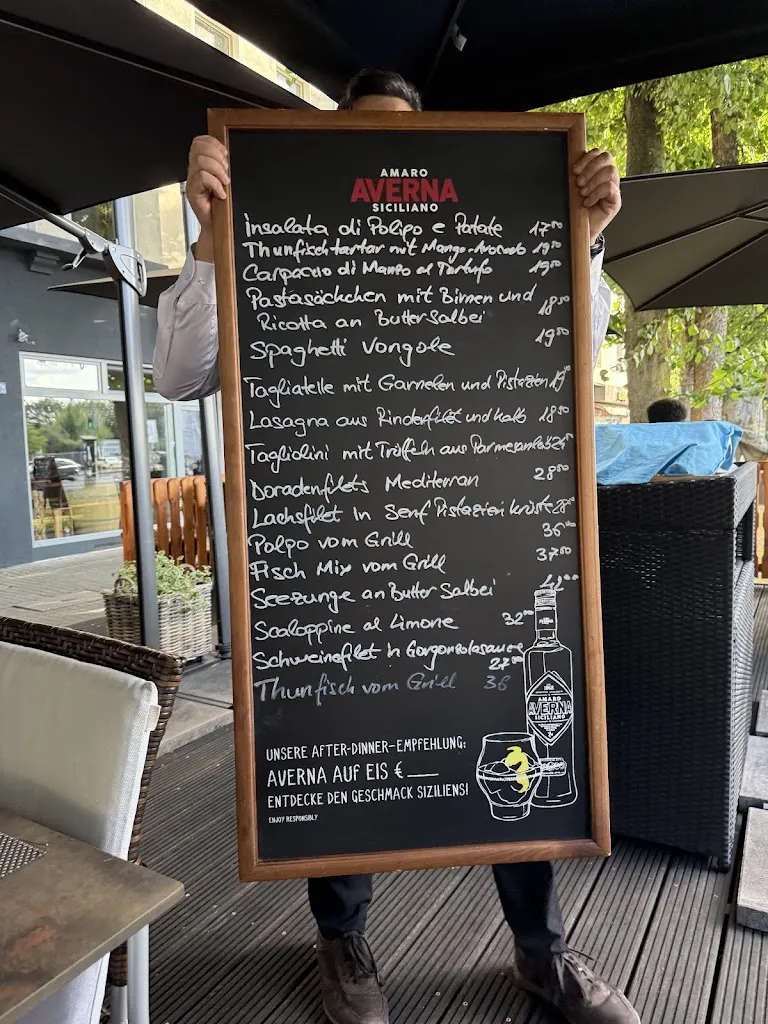 AMARO
AVERNA
SICILIANO
Insalata di Polipo e Patate 17⁰⁰
Thunfischtartar mit Mango-Avocado 19⁵⁰
Carpaccio di Manzo al Tartufo 19⁵⁰
Pastasäckchen mit Birnen und
Ricotta an Butter Salbei 18⁵⁰
Spaghetti Vongole 19⁵⁰
Tagliatelle mit Garnelen und Pistazien 19
Lasagna aus Rinderfilet und Kalb 18⁵⁰
Tagliolini mit Trüffeln aus Parmesanlaib
Doradenfilets Mediterran 28⁵⁰
Lachsfilet in Senf Pistazien kruste 28
Polpo vom Grill 36⁰⁰
Fisch Mix vom Grill 37⁵⁰
Seezunge an Butter Salbei 42⁰⁰
Scaloppine al Limone 32⁰⁰
Schweinefilet in Gorgonzolasauce
27⁰⁰
Thunfisch vom Grill 36
AMARO
AVERNA
SICILIANO
UNSERE AFTER-DINNER-EMPFEHLUNG:
AVERNA AUF EIS €____
ENTDECKE DEN GESCHMACK SIZILIENS!
ENJOY RESPONSIBLY